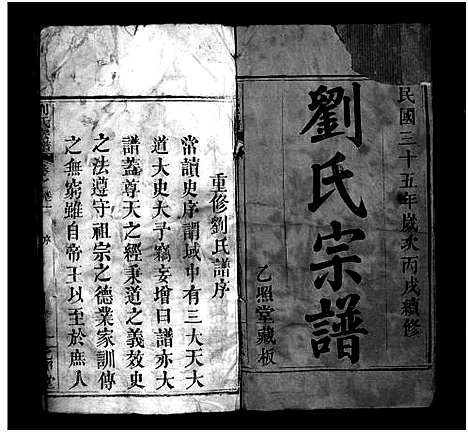 民國三十五年歲次丙戌續修
劉氏宗譜
乙照堂藏板
重修劉氏譜序
嘗讀史序謂域中有三大天大
道大史大予竊妄增曰譜亦大
譜蓋尊天之經秉道之義效史
之法遵守祖宗之德業家訓傳
之無窮雖自帝王以至於庶人